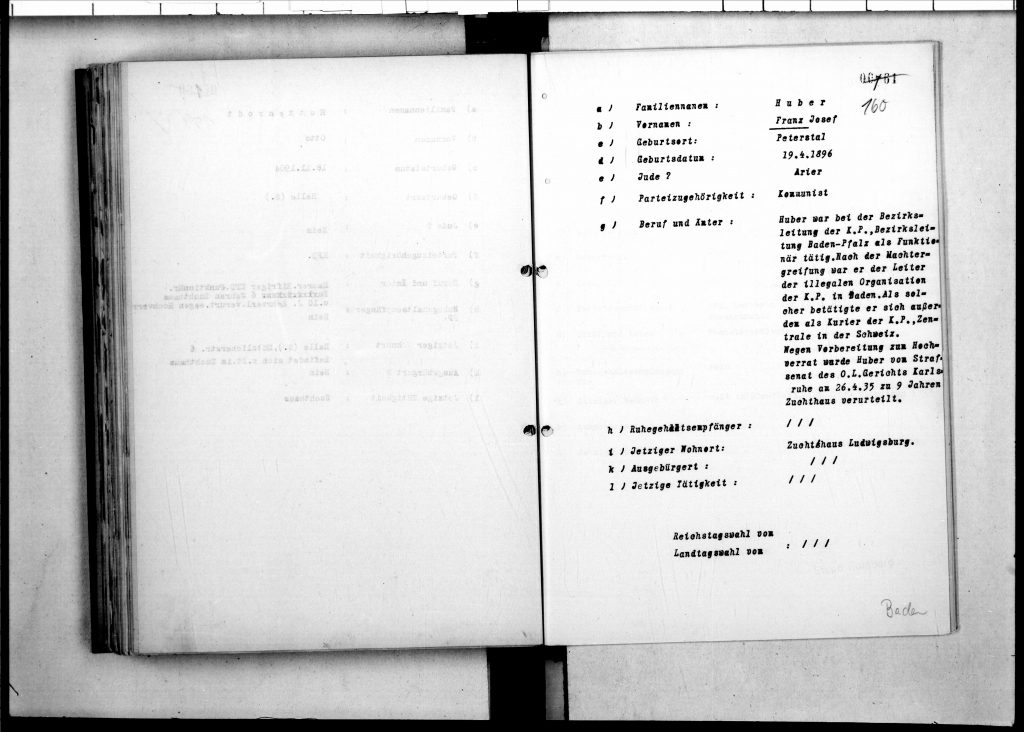 160
a) Familiennamem : Huber
b) Vornamen : Franz Josef
c) Geburtsort: Peterstal
d) Geburtsdatum : 19.4.1896
e) Jude ? Arier
f) Parteizugehörigkeit : Kommunist
g) Beruf und Ämter : Huber war bei der Bezirks=
leitung der K.P.,Bezirkslei=
tung Baden-Pfalz als Funktio=
när tätig.Nach der Machter=
greifung war er der Leiter
der illegalen Organisation
der K.P. in Baden.Als sol=
cher betätigte er sich außer=
dem als Kurier der K.P.,Zen=
trale in der Schweiz.
Wegen Vorbereitung zum Hoch=
verrat wurde Huber vom Straf=
senat des O.L.Gerichts Karls=
ruhe am 26.4.35 zu 9 Jahren
Zuchthaus verurteilt.
h) Ruhegehaltsempfänger : / / /
i) Jetziger Wohnort: Zuchthaus Ludwigsburg.
k) Ausgebürgert : / / /
l) Jetzige Tätigkeit : / / /
Reichstagswahl vom
Landtagswahl vom : / / /
Baden